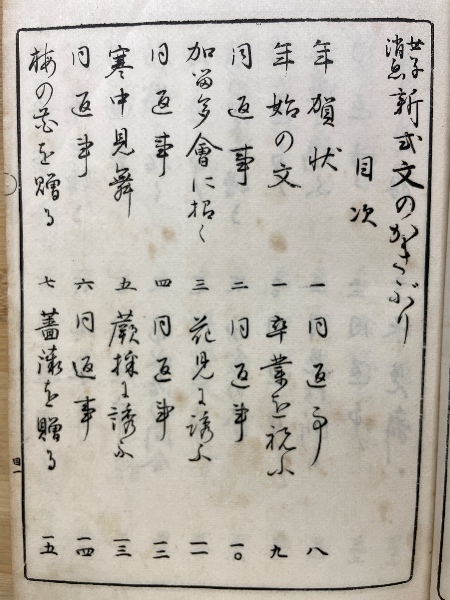 女子消息 新式文のかきぶり
目次
年賀状 一
年始の文 一
同返事 二
加留多會に招く 三
同返事 四
寒中見舞 五
同返事 六
梅の花を贈る 七
同返事 八
卒業を祝ふ 九
同返事 一〇
花見に誘ふ 一一
同返事 一二
蕨採に誘ふ 一三
同返事 一四
薔薇を贈る 一五
目一